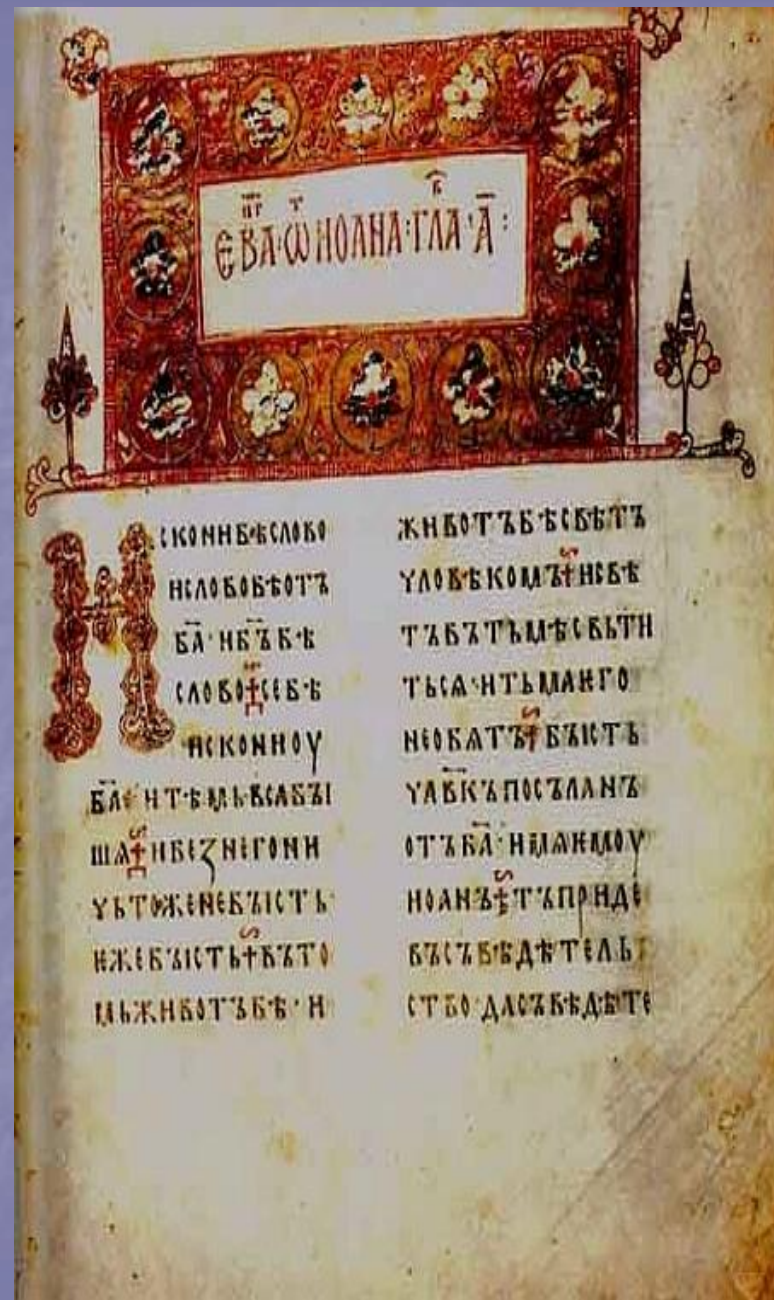 ЕВАⷩ҇ГⷢѾИОАНА·ГЛАⷡ·А҃:
ИСКОНИБѢСЛОВО
ИСЛОВОБѢОТЪ
БА҃·ИБЪ҃БѢ
СЛОВО СЕБѢ
ИСКОНИОУ
БА҃·ИТѢМЬВСАБЫ
ШѦ ИБЕЗНЕГОНИ
ЧЬТОЖЕНЕБЪІСТЬ
ѤЖЕБЪІСТЬ ВЪТО
МЬЖИВОТЪБѢ·И
ЖИВОТЪБѢСВѢТЪ
ЧЛОВѢКОМЪ ИСВѢ
ТЪВЪТЬМѢСВЬТИ
ТЬСѦ·ИТЬМАѤГО
НЕОБѦТЪ БЪІСТЬ
ЧЛВ҃КЪПОСЪЛАНЪ
ОТЪБА҃·ИМѦѤМОУ
ИОАНЪ ТЪПРИДЕ
ВЪСЪВѢДѢТЕЛЬ
СТВО·ДАСЪВѢДѢТЕ